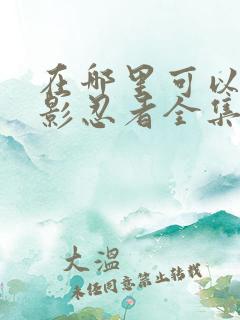 在哪里可以
影忍者全集
大温
未经同意禁止转载